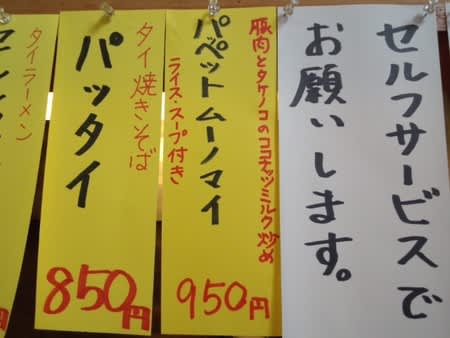 セルフサービスで
お願いします。
豚肉とタケノコのココナッツミルク炒め
パペットムーノマイ
ライス・スープ付き
950円
タイ焼きそば
パッタイ
850円
タイラーメン